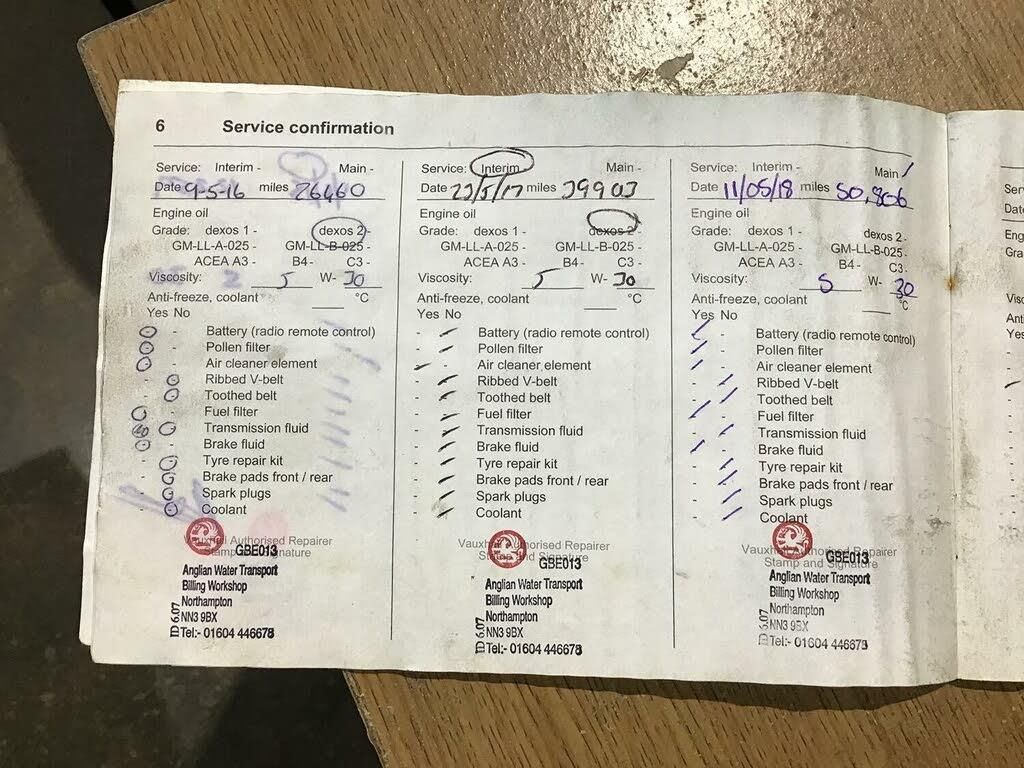 6 Service confirmation
Service: Interim - Main -
Date 9-5-16 miles 26460
Engine oil
Grade: dexos 1 - dexos 2 -
GM-LL-A-025 - GM-LL-B-025 -
ACEA A3 - B4 - C3 -
Viscosity: 5 W- 30
Anti-freeze, coolant °C
Yes No
Battery (radio remote control)
Pollen filter
Air cleaner element
Ribbed V-belt
Toothed belt
Fuel filter
Transmission fluid
Brake fluid
Tyre repair kit
Brake pads front / rear
Spark plugs
Coolant
Vauxhall Authorised Repairer
Stamp and Signature
GBE013
Anglian Water Transport
Billing Workshop
Northampton
NN3 9BX
Tel:- 01604 446678
ID 6.07
Service: Interim Main -
Date 23/5/17 miles 39903
Engine oil
Grade: dexos 1 - dexos 2 -
GM-LL-A-025 - GM-LL-B-025 -
ACEA A3 - B4 - C3 -
Viscosity: 5 W- 30
Anti-freeze, coolant °C
Yes No
Battery (radio remote control)
Pollen filter
Air cleaner element
Ribbed V-belt
Toothed belt
Fuel filter
Transmission fluid
Brake fluid
Tyre repair kit
Brake pads front / rear
Spark plugs
Coolant
Vauxhall Authorised Repairer
Stamp and Signature
GBE013
Anglian Water Transport
Billing Workshop
Northampton
NN3 9BX
Tel:- 01604 446678
ID 6.07
Service: Interim - Main /
Date 11/05/18 miles 50,806
Engine oil
Grade: dexos 1 - dexos 2 -
GM-LL-A-025 - GM-LL-B-025 -
ACEA A3 - B4 - C3 -
Viscosity: 5 W- 30
Anti-freeze, coolant °C
Yes No
Battery (radio remote control)
Pollen filter
Air cleaner element
Ribbed V-belt
Toothed belt
Fuel filter
Transmission fluid
Brake fluid
Tyre repair kit
Brake pads front / rear
Spark plugs
Coolant
Vauxhall Authorised Repairer
Stamp and Signature
GBE013
Anglian Water Transport
Billing Workshop
Northampton
NN3 9BX
Tel:- 01604 446678
ID 6.07